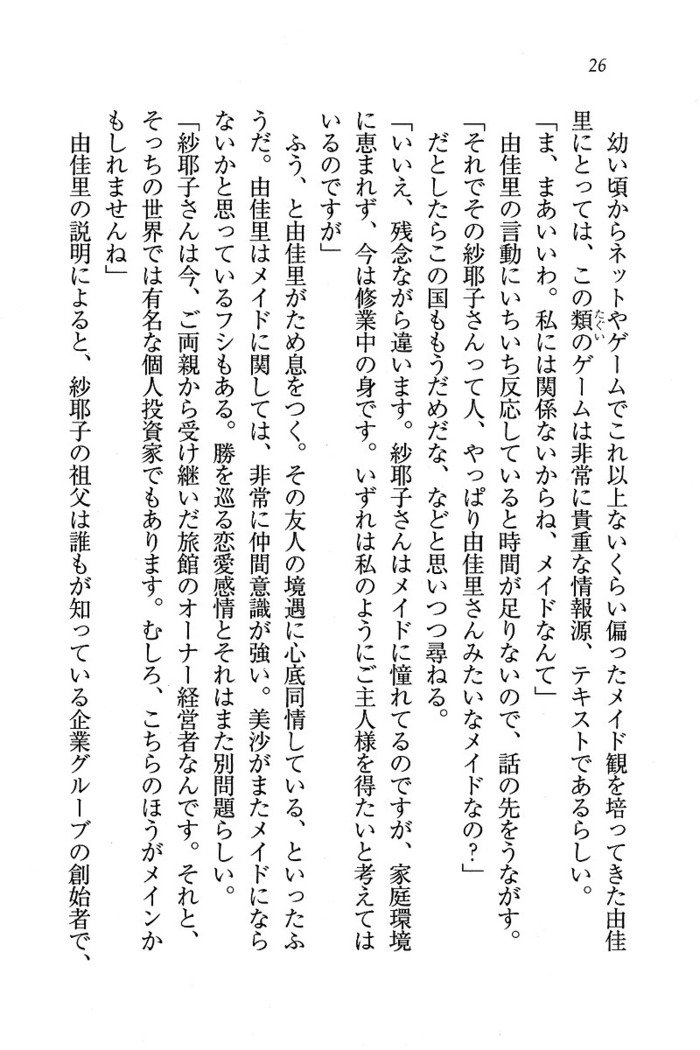 26
幼い頃からネットやゲームでこれ以上ないくらい偏ったメイド観を培ってきた由佳
里にとっては、この類のゲームは非常に貴重な情報源、テキストであるらしい。
たぐい
「ま、まあいいわ。私には関係ないからね、メイドなんて」
由佳里の言動にいちいち反応していると時間が足りないので、話の先をうながす。
「それでその紗耶子さんって人、やっぱり由佳里さんみたいなメイドなの？」
だとしたらこの国ももうだめだな、などと思いつつ尋ねる。
「いいえ、残念ながら違います。紗耶子さんはメイドに憧れてるのですが、家庭環境
に恵まれず、今は修業中の身です。いずれは私のようにご主人様を得たいと考えては
いるのですが」
ふう、と由佳里がため息をつく。その友人の境遇に心底同情している、といったふ
うだ。由佳里はメイドに関しては、非常に仲間意識が強い。美沙がまたメイドになら
ないかと思っているフシもある。勝を巡る恋愛感情とそれはまた別問題らしい。
「紗耶子さんは今、ご両親から受け継いだ旅館のオーナー経営者なんです。それと、
そっちの世界では有名な個人投資家でもあります。むしろ、こちらのほうがメインか
もしれませんね」
由佳里の説明によると、紗耶子の祖父は誰もが知っている企業グループの創始者で、